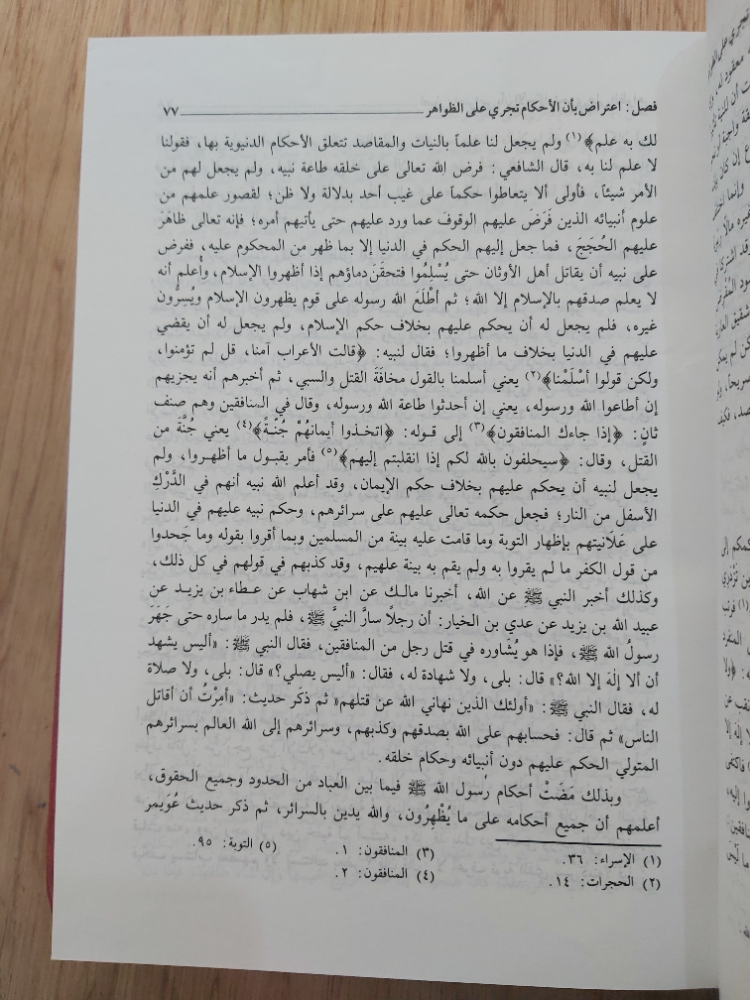 فصل: اعتراض بأن الأحكام تجري على الظواهر ٧٧
لك به علم﴾(١) ولم يجعل لنا علماً بالنيات والمقاصد تتعلق الأحكام الدنيوية بها، فقولنا
لا علم لنا به، قال الشافعي: فرض الله تعالى على خلقه طاعة نبيه، ولم يجعل لهم من
الأمر شيئاً، فأولى ألا يتعاطوا حكماً على غيب أحد بدلالة ولا ظن؛ لقصور علمهم من
علوم أنبيائه الذين فَرَضَ عليهم الوقوف عما ورد عليهم حتى يأتيهم أمره؛ فإنه تعالى ظاهَرَ
عليهم الحُجَجَ، فما جعل إليهم الحكم في الدنيا إلا بما ظهر من المحكوم عليه، ففرض
على نبيه أن يقاتل أهل الأوثان حتى يُسْلِمُوا فتحقَنَ دماؤهم إذا أظهروا الإسلام، وأعلم أنه
لا يعلم صدقهم بالإسلام إلا الله؛ ثم أطْلَعَ الله رسوله على قوم يظهرون الإسلام ويُسِرُّون
غيره، فلم يجعل له أن يحكم عليهم بخلاف حكم الإسلام، ولم يجعل له أن يقضي
عليهم في الدنيا بخلاف ما أظهروا؛ فقال لنبيه: ﴿قالت الأعراب آمنا، قل لم تؤمنوا،
ولكن قولوا أسْلَمْنا﴾(٢) يعني أسلمنا بالقول مخافَةَ القتل والسبي، ثم أخبرهم أنه يجزيهم
إن أطاعوا الله ورسوله، يعني إن أحدثوا طاعة الله ورسوله، وقال في المنافقين وهم صنف
ثانٍ: ﴿إذا جاءك المنافقون﴾(٣) إلى قوله: ﴿اتخذوا أيمانهُمْ جُنَّةً﴾(٤) يعني جُنَّة من
القتل، وقال: ﴿سيحلفون بالله لكم إذا انقلبتم إليهم﴾(٥) فأمر بقبول ما أظهروا، ولم
يجعل لنبيه أن يحكم عليهم بخلاف حكم الإيمان، وقد أعلم الله نبيه أنهم في الدَّرْكِ
الأسفل من النار؛ فجعل حكمه تعالى عليهم على سرائرهم، وحكم نبيه عليهم في الدنيا
على عَلاَنيتهم بإظهار التوبة وما قامت عليه بينة من المسلمين وبما أقروا بقوله وما جَحدوا
من قول الكفر ما لم يقروا به ولم يقم به بينة علهيم، وقد كذبهم في قولهم في كل ذلك،
وكذلك أخبر النبي ﷺ عن الله، أخبرنا مالك عن ابن شهاب عن عطاء بن يزيد عن
عبيد الله بن يزيد عن عدي بن الخيار: أن رجلاً سارَّ النبيَّ ﷺ، فلم يدر ما ساره حتى جَهَرَ
رسولُ الله ﷺ، فإذا هو يُشَاوره في قتل رجل من المنافقين، فقال النبي ﷺ: «أليس يشهد
أن ألا إلَهَ إلا الله؟» قال: بلى، ولا شهادة له، فقال: «أليس يصلي؟» قال: بلى، ولا صلاة
له، فقال النبي ﷺ: «أولئك الذين نهاني الله عن قتلهم» ثم ذكَر حديث: «أمِرْتُ أن أقاتل
الناس» ثم قال: فحسابهم على الله بصدقهم وكذبهم، وسرائرهم إلى الله العالم بسرائرهم
المتولي الحكم عليهم دون أنبيائه وحكام خلقه.
وبذلك مَضَتْ أحكام رسول الله ﷺ فيما بين العباد من الحدود وجميع الحقوق،
أعلمهم أن جميع أحكامه على ما يُظْهِرُون، والله يدين بالسرائر، ثم ذكر حديث عُوَيمر
(١) الإسراء: ٣٦. (٣) المنافقون: ١. (٥) التوبة: ٩٥.
(٢) الحجرات: ١٤. (٤) المنافقون: ٢.